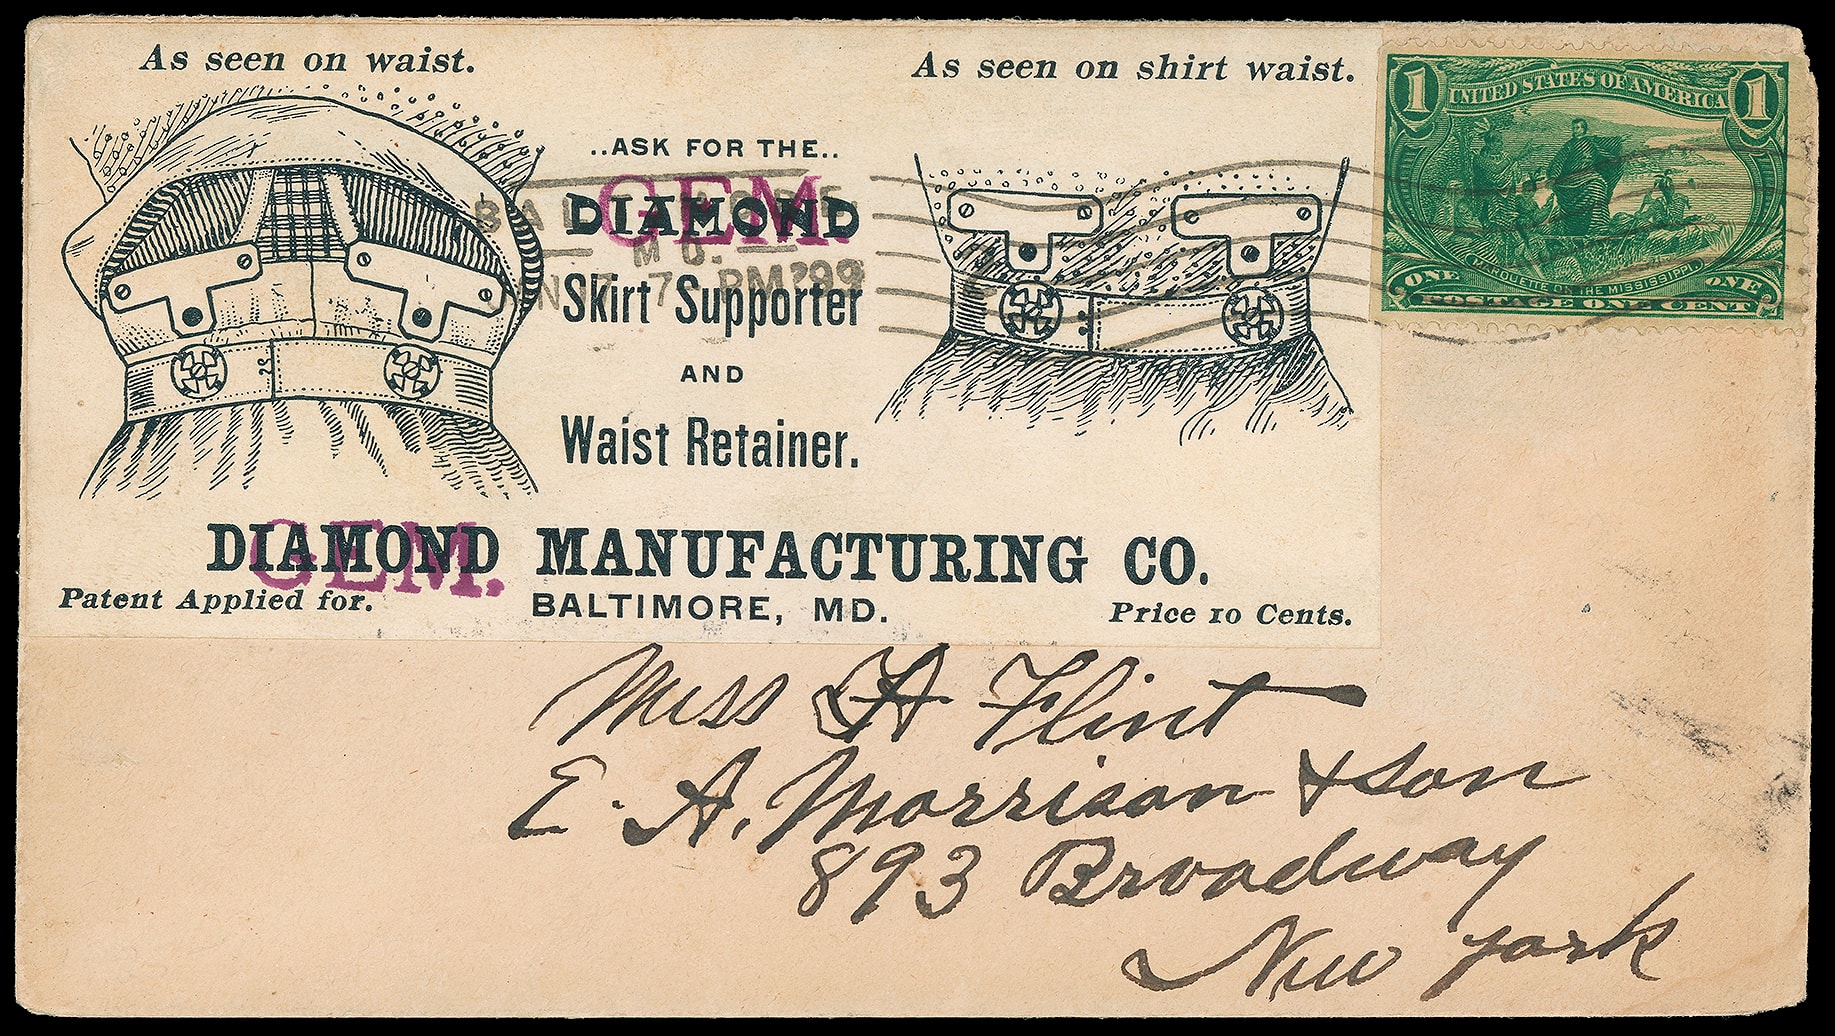 As seen on waist.
As seen on shirt waist.
..ASK FOR THE..
DIAMOND
GEM
Skirt Supporter
AND
Waist Retainer.
DIAMOND MANUFACTURING CO.
GEM.
Patent Applied for.
BALTIMORE, MD.
Price 10 Cents.
MD.
7 PM '99
1 UNITED STATES OF AMERICA 1
MARQUETTE ON THE MISSISSIPPI
ONE ONE
POSTAGE ONE CENT
Miss H Flint
E. A. Morrison & Son
893 Broadway
New York